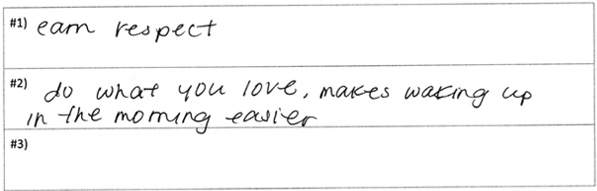 #1) earn respect
#2) do what you love, makes waking up
in the morning easier
#3)